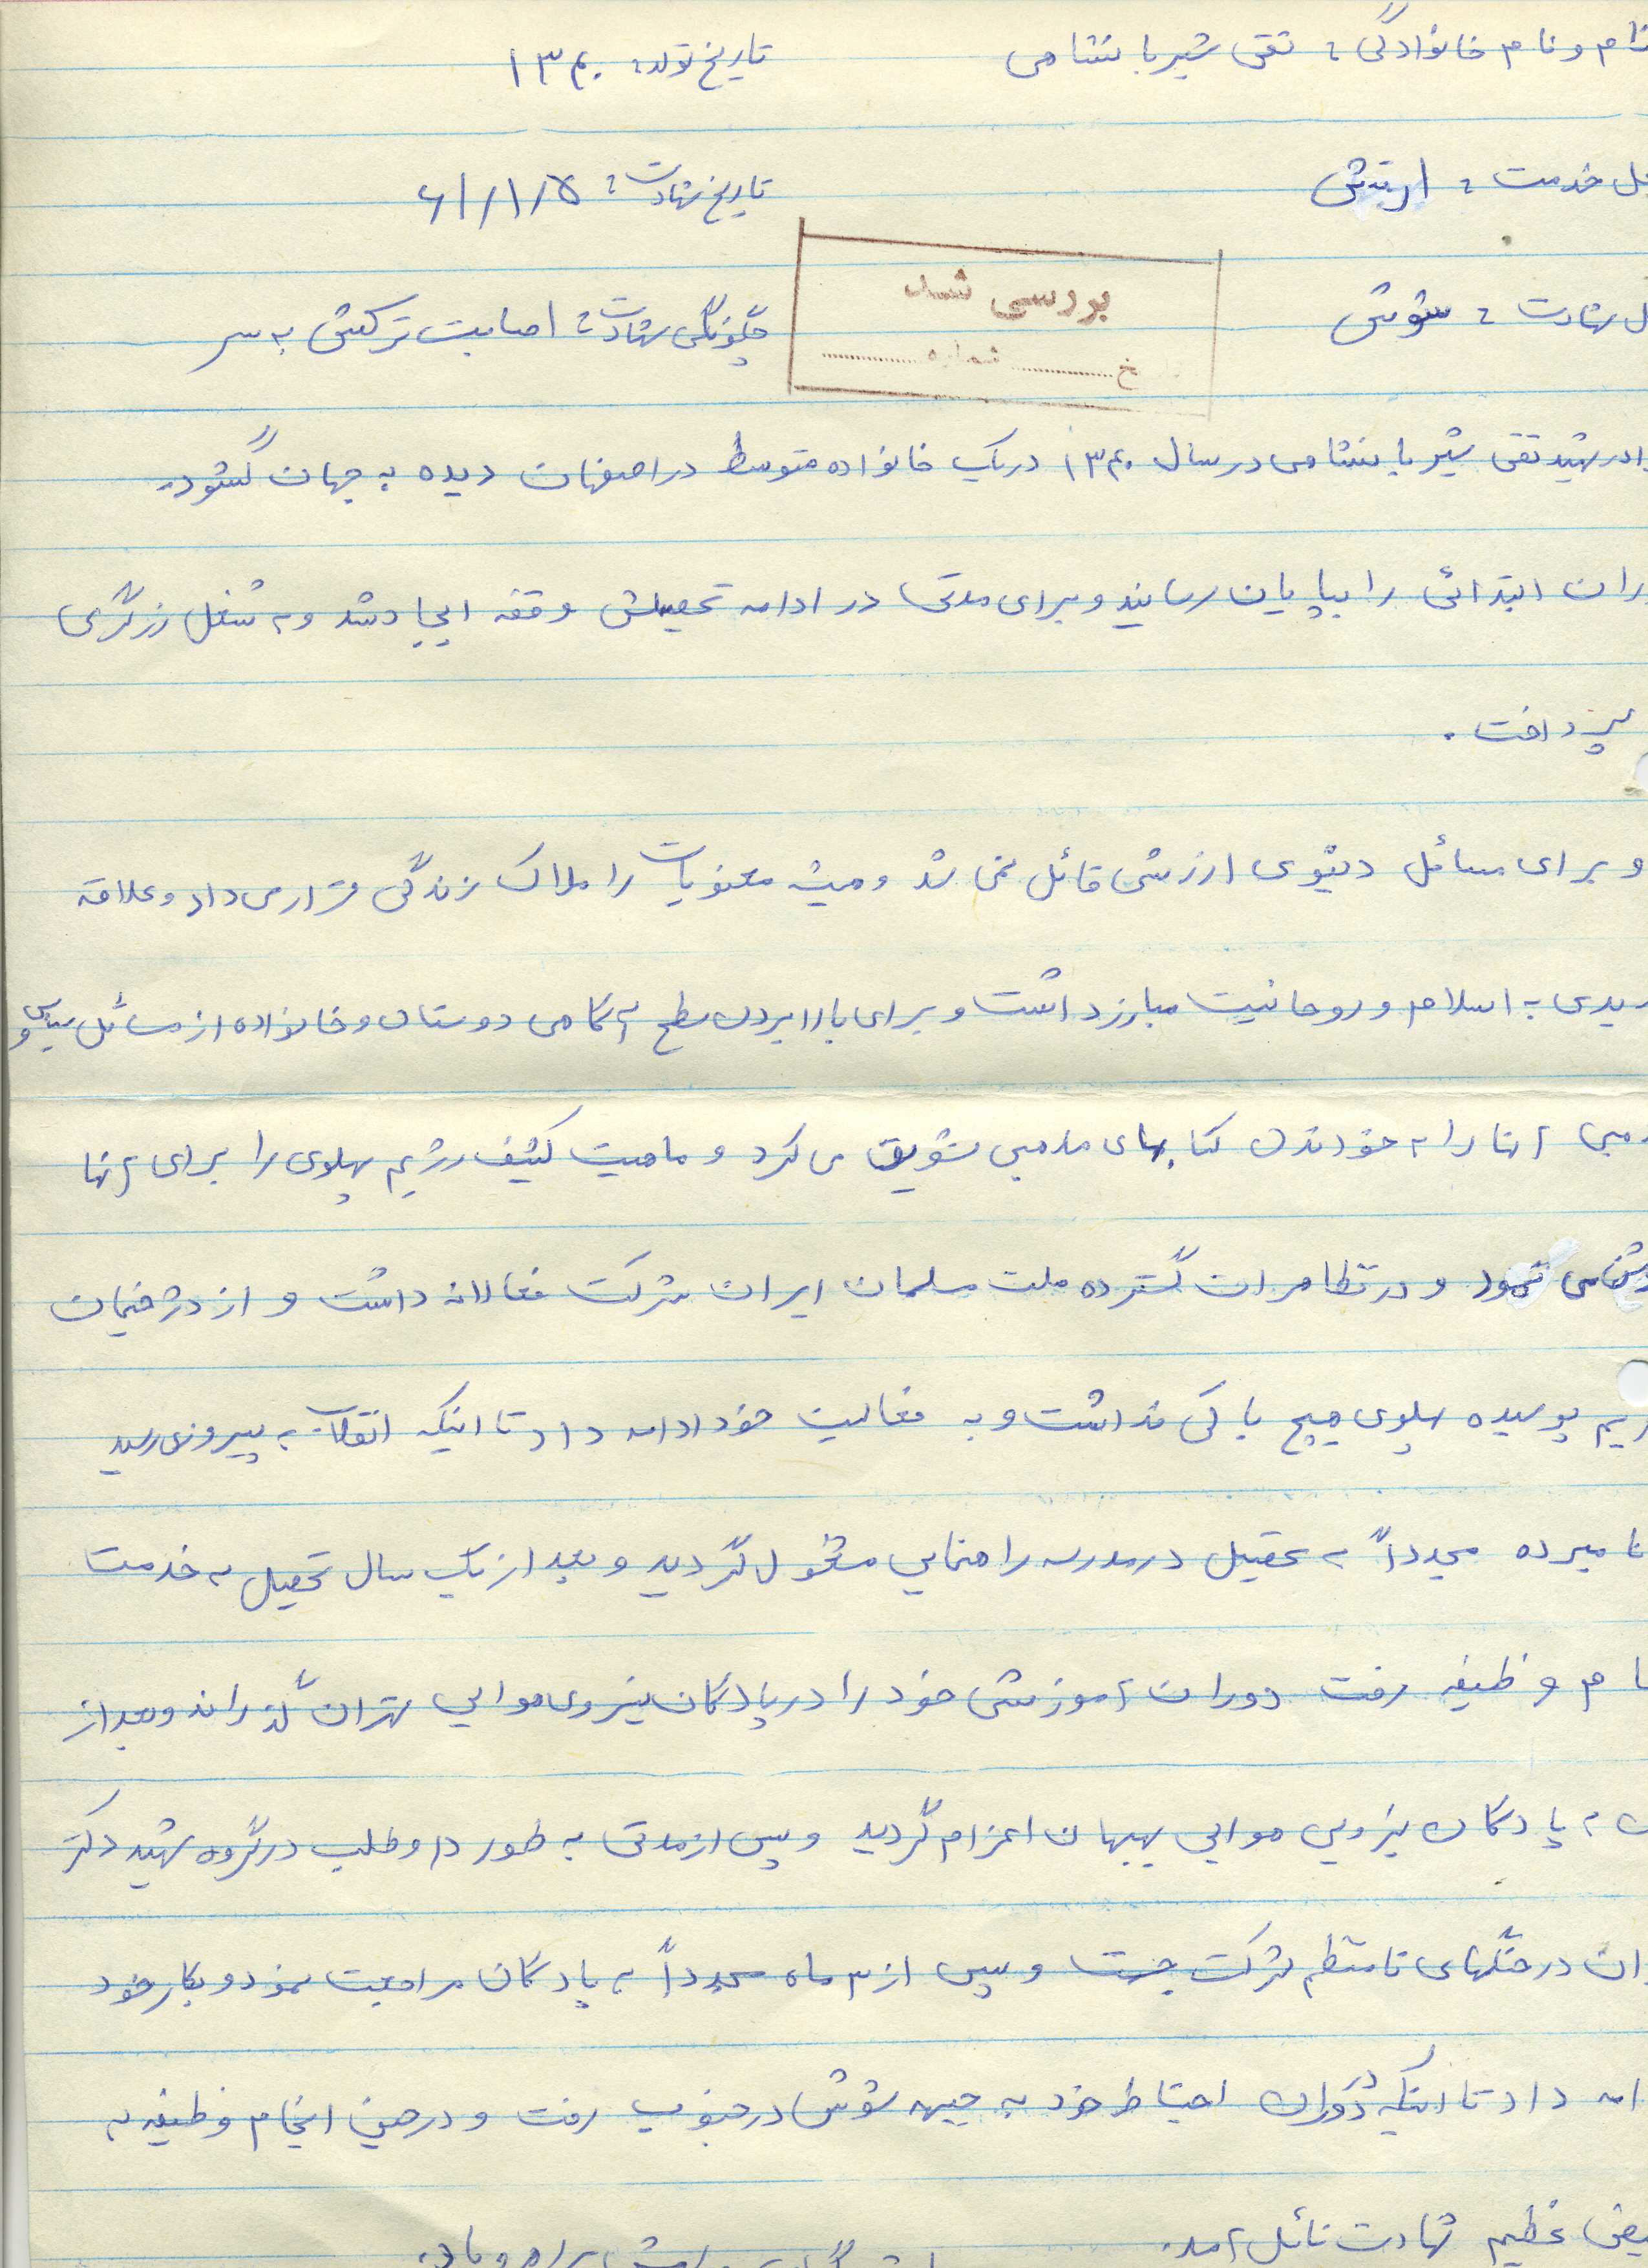 نام و نام خانوادگی : تقی شیربانشاهی تاریخ تولد : ۱۳۴۰
محل خدمت : ارتش تاریخ شهادت : ۶۱/۱/۵
شهادت : شوش چگونگی شهادت : اصابت ترکش به سر
بررسی شد
شماره
شهید تقی شیربانشاهی در سال ۱۳۴۰ در یک خانواده متوسط در اصفهان دیده به جهان گشود.
ران ابتدائی را بپایان رسانید و برای مدتی در ادامه تحصیلش وقفه ایجاد شد و به شغل زرگری
پرداخت .
و برای مسائل دنیوی ارزشی قائل نمی شد و همیشه معنویات را ملاک زندگی قرار می داد و علاقه
دیدی به اسلام و روحانیت مبارز داشت و برای بالا بردن سطح آگاهی دوستان و خانواده از مسائل سیاسی و
هبی آنها را به خواندن کتابهای مذهبی تشویق می کرد و ماهیت کثیف رژیم پهلوی را برای آنها
می نمود و در تظاهرات گسترده ملت مسلمان ایران شرکت فعالانه داشت و از دژخیمان
ژیم پوسیده پهلوی هیچ باکی نداشت و به فعالیت خود ادامه داد تا اینکه انقلاب به پیروزی رسید
نامبرده مجدداً به تحصیل در مدرسه راهنمایی مشغول گردید و بعد از یک سال تحصیل به خدمت
ام وظیفه رفت دوران آموزشی خود را در پادگان نیروی هوایی تهران گذراند و بعد از
ن به پادگان نیرویی هوایی بهبهان اعزام گردید و پس از مدتی به طور داوطلب در گروه شهید دکتر
ان در جنگهای نامنظم شرکت جست و سپس از ۳ ماه مجدداً به پادگان مراجعت نمود و بکار خود
امه داد تا اینکه در دوران احتیاط خود به جبهه شوش در جنوب رفت و در حین انجام وظیفه به
یض عظیم شهادت نائل آمد.